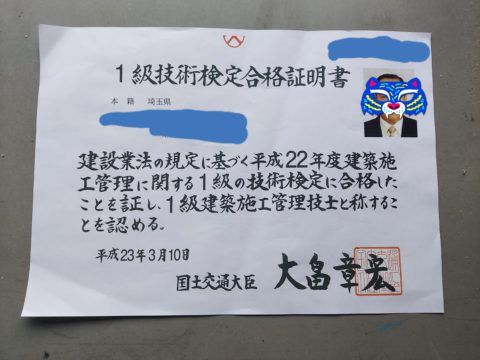 1級技術検定合格証明書
本籍 埼玉県
建設業法の規定に基づく平成22年度建築施
工管理に関する1級の技術検定に合格した
ことを証し、1級建築施工管理技士と称するこ
とを認める。
平成23年3月10日
国土交通大臣 大畠章宏